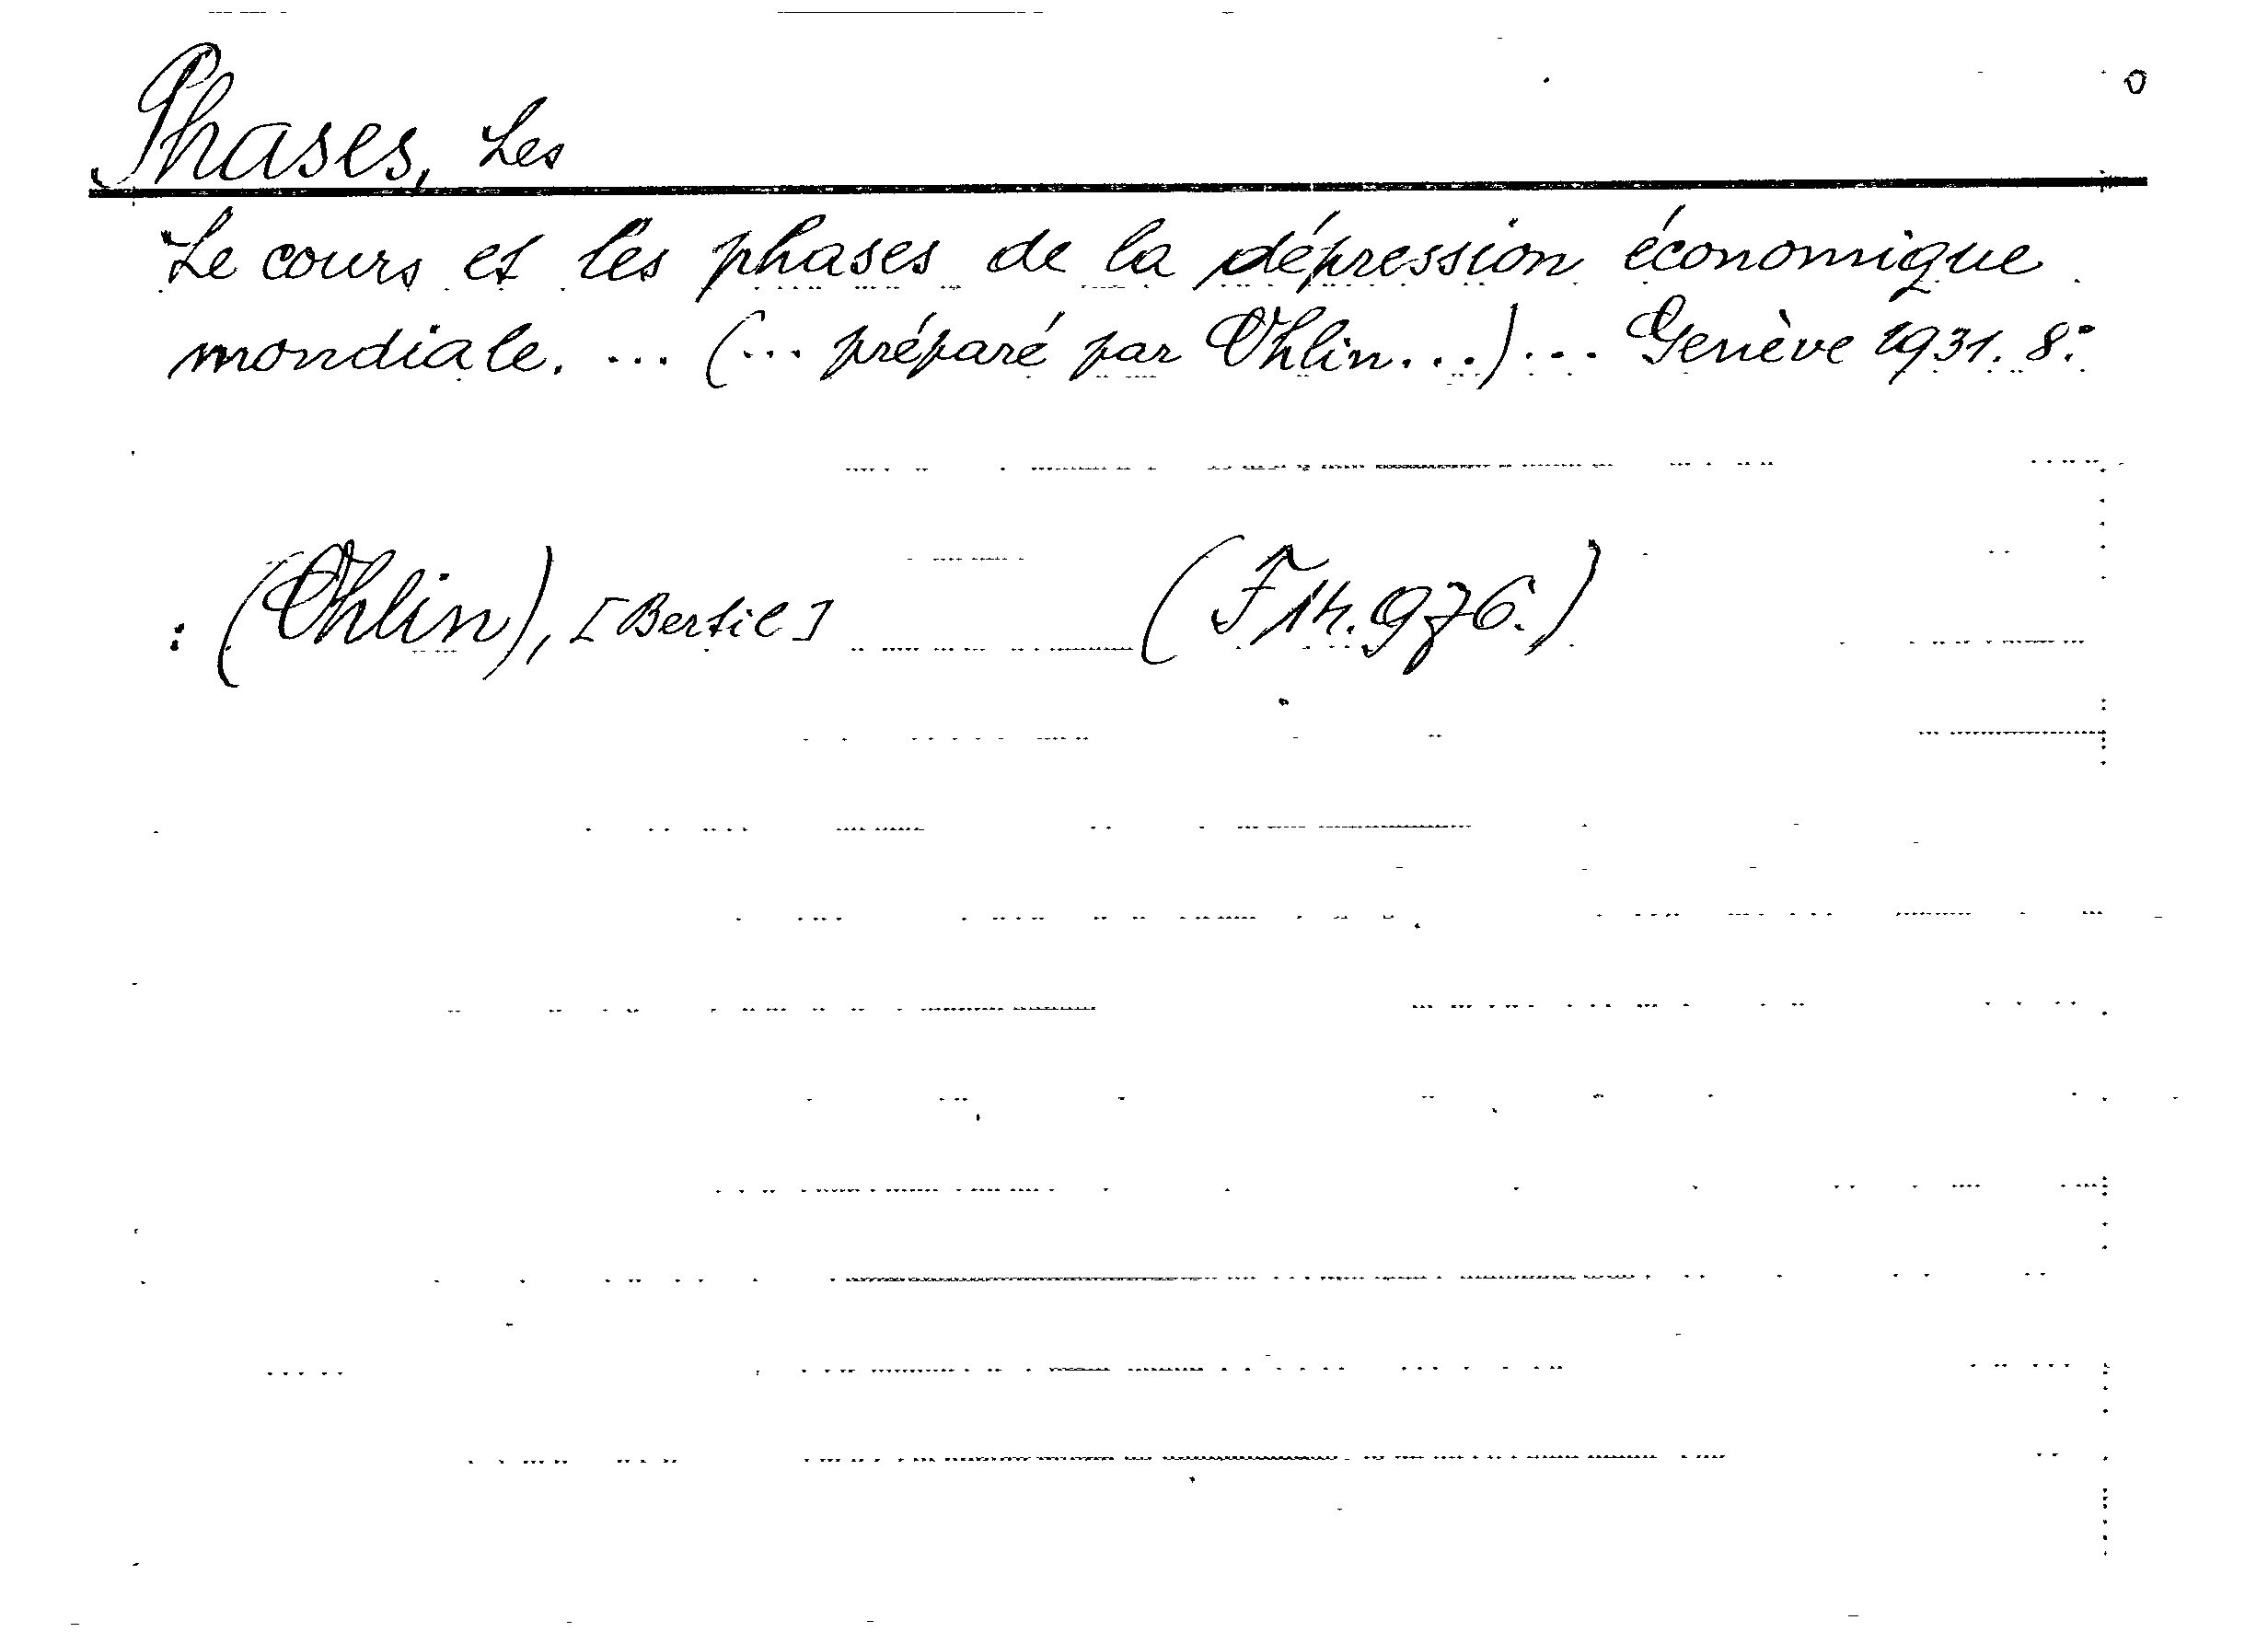 Phases, Les
Le cours et les phases de la dépression économique
mondiale. ... (... préparé par Ohlin...)... Genève 1931. 8:°
: (Ohlin), [Bertil] (F 14. 976.)